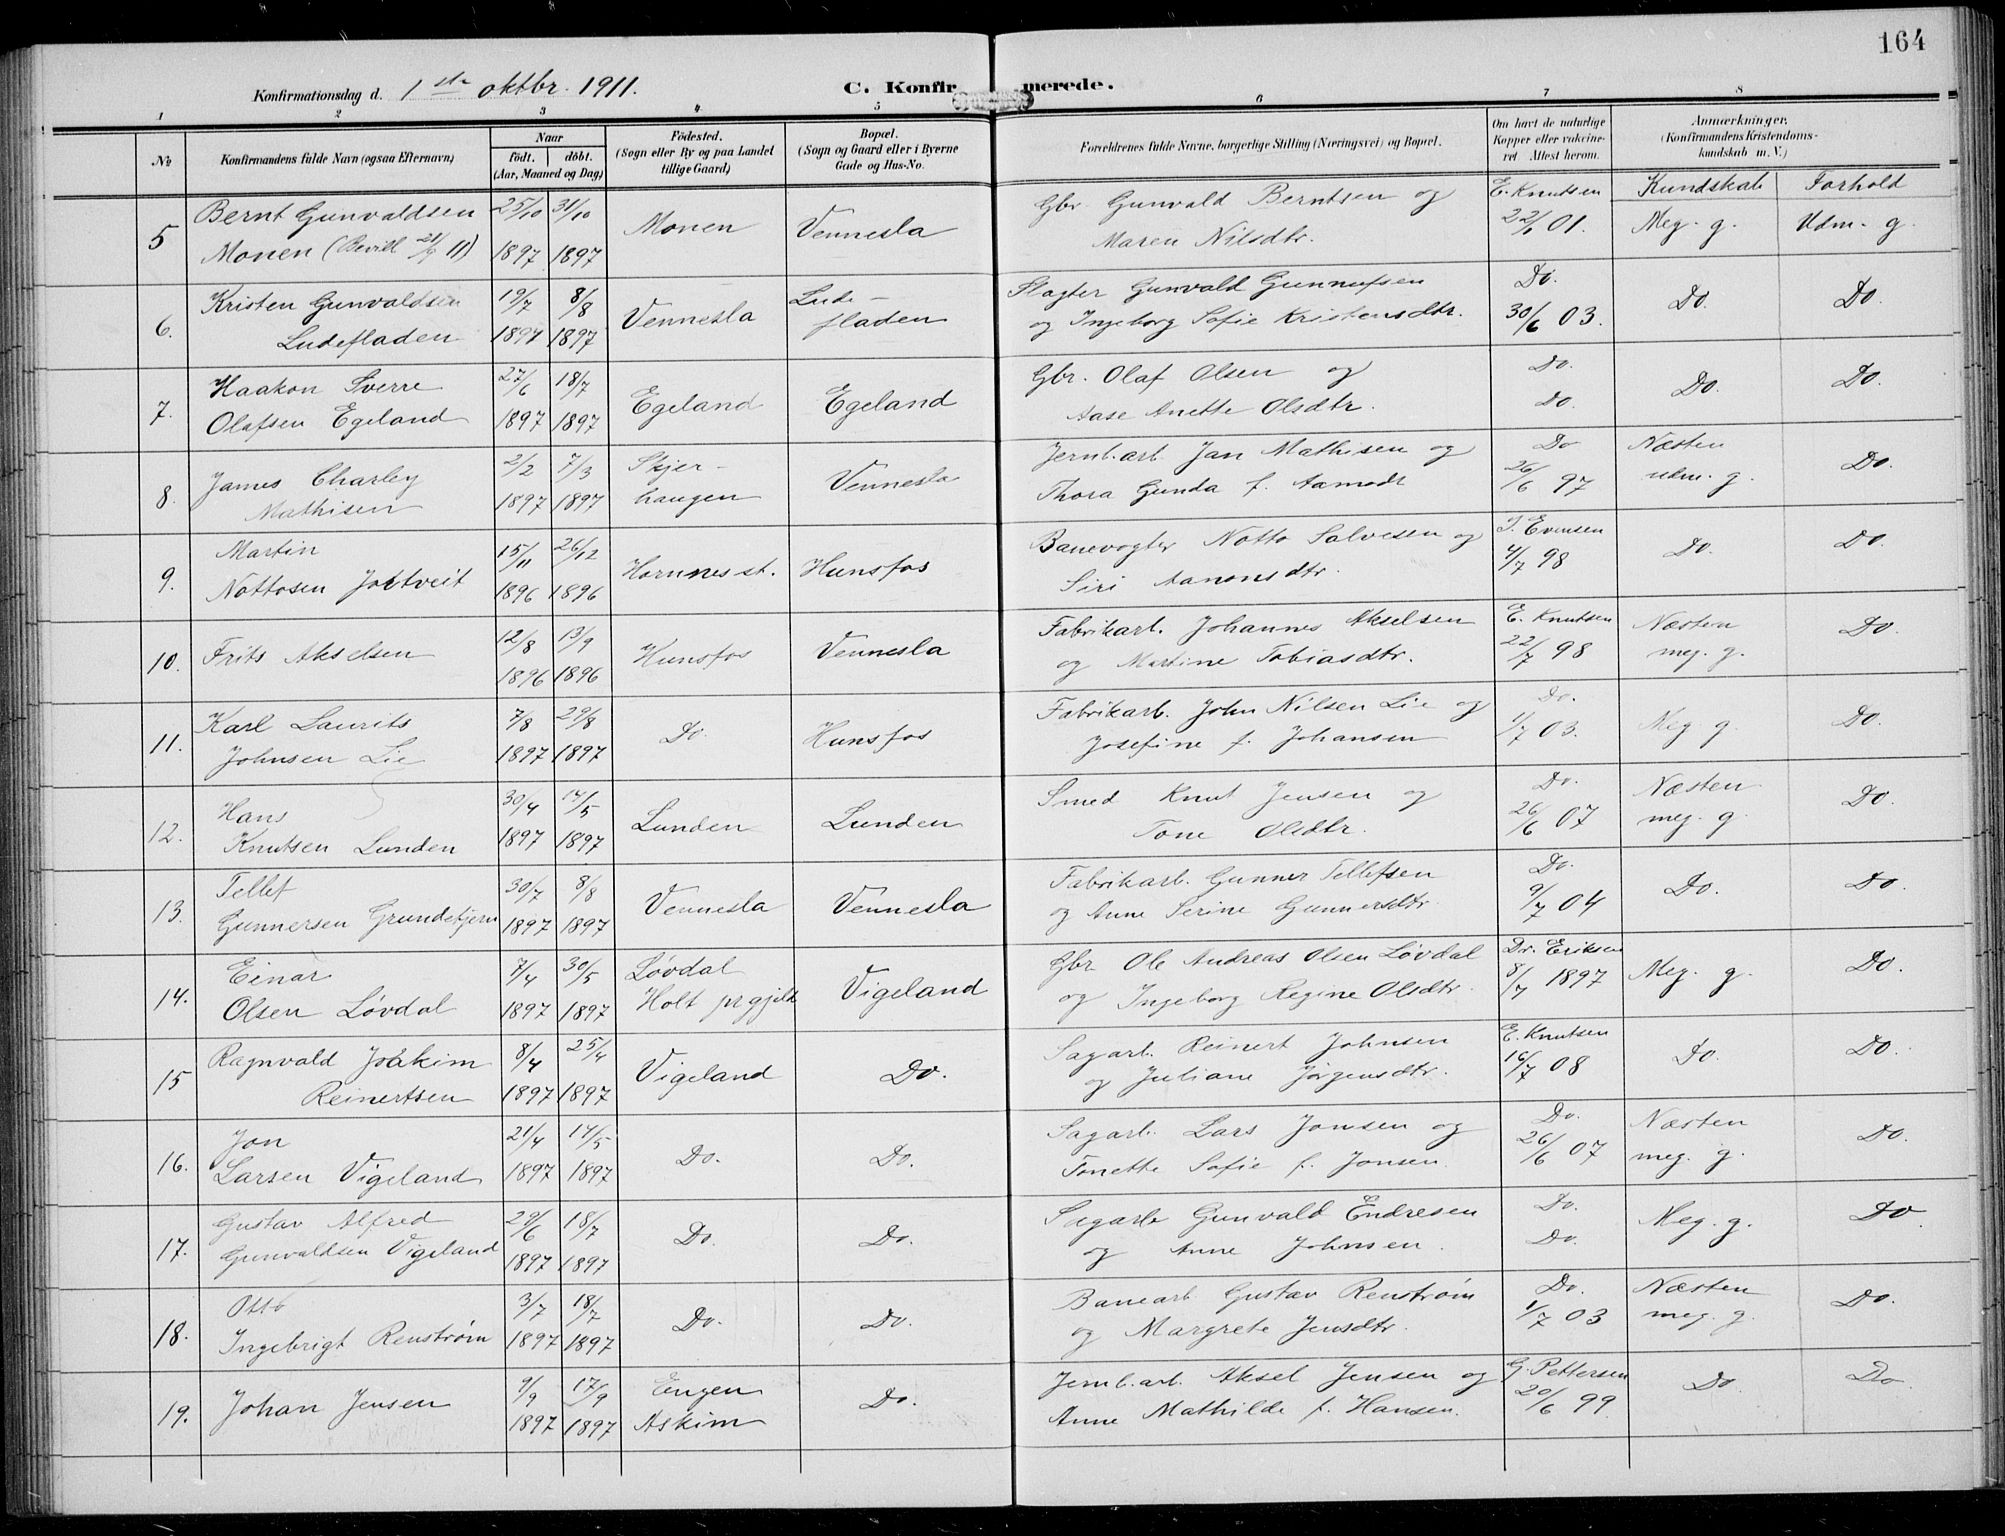 164
Konfirmationsdag d. 1ste oktbr. 1911.
C. Konfirmerede.
1 2 3 4 5 6 7 8
No
Konfirmandens fulde Navn (ogsaa Efternavn)
Naar
født. døbt.
(Aar, Maaned og Dag)
Fødested.
(Sogn eller By og paa Landet
tillige Gaard)
Bopæl.
(Sogn og Gaard eller i Byerne
Gade og Hus-No.
Forældrenes fulde Navne, borgerlige Stilling (Næringsvei) og Bopæl.
Om havt de naturlige
Kopper eller vaccine-
ret Attest herom.
Anmærkninger.
(Konfirmandens Kristendoms-
kundskab m. V.)
Kundskab Forhold
5 Bernt Gunvaldsen 25/10 31/10 Monen Vennesla Gbr. Gunvald Berntsen og E. Knutsen
Monen (Bevill 21/9 11) 1897 1897 Maren Nilsdtr. 22/6 01. Meg. g. Udm. g.
6. Kristen Gunvaldsen 19/7 8/8 Vennesla Lude- Slagter Gunvald Gunnufsen Do. Do. Do.
Ludefladen 1897 1897 fladen og Ingeborg Sofie Kristensdtr. 30/6 03.
7. Haakon Sverre 27/6 18/7 Egeland Egeland Gbr. Olaf Olsen og Do. Do. Do.
Olafsen Egeland 1897 1897 Aase Anette Olsdtr. Do.
8. James Charley 2/2 7/3 Skjer- Vennesla Jernb.arb. Jan Mathisen og Do Næsten Do.
Mathisen 1897 1897 haugen Thora Gunda f. Aamodt 26/6 97 udm. g.
9. Martin 15/11 26/12 Hornnes st. Hunsfos Banevogter Notto Salvesen og T. Evensen Do. Do.
Nottosen Jortveit 1896 1896 Siri Aanonsdtr. 4/7 98
10. Frits Akselsen 12/8 13/9 Hunsfos Vennesla Fabrikarb. Johannes Akselsen E. Knutsen Næsten Do.
1896 1896 og Martine Tobiasdtr. 22/7 98 meg. g.
11. Karl Laurits 7/8 29/8 Do. Hunsfos Fabrikarb. John Nilsen Lie og Do. Meg. g. Do.
Johnsen Lie 1897 1897 Josefine f. Johansen 1/7 03.
12. Hans 30/4 14/5 Lunden Lunden Smed Knut Jensen og Do. Næsten Do.
Knutsen Lunden 1897 1897 Tone Olsdtr. 26/6 07 meg. g.
13. Tellef 30/7 8/8 Vennesla Vennesla Fabrikarb. Gunner Tellefsen Do. Do. Do.
Gunnersen Grundetjern 1897 1897 og Anne Serine Gunnersdtr. 9/7 04
14. Einar 7/4 30/5 Løvdal Vigeland Gbr. Ole Andreas Olsen Løvdal Dr. Eriksen Meg. g. Do.
Olsen Løvdal 1897 1897 Holt prgjeld og Ingeborg Regine Olsdtr. 8/7 1897
15 Ragnvald Joakim 8/4 25/4 Vigeland Do. Sagarb. Reinert Johnsen E. Knutsen Do. Do.
Reinertsen 1897 1897 og Juliane Jørgensdtr. 16/7 08
16. Jon 21/4 14/5 Do. Do. Sagarb. Lars Jonsen og Do. Næsten Do.
Larsen Vigeland 1897 1897 Tonette Sofie f. Jonsen. 26/6 07 meg. g.
17. Gustav Alfred 29/6 18/7 Do. Do. Sagarb. Gunvald Endresen Do. Meg. g. Do
Gunvaldsen Vigeland 1897 1897 og Anne Johnsen. Do.
18. Otto 3/7 18/7 Do. Do. Banearb. Gustav Renstrøm Do. Næsten Do.
Ingebrigt Renstrøm 1897 1897 og Margrete Jensdtr. 1/7 03 meg. g.
19. Johan Jensen 9/9 17/9 Engen Do. Jernb.arb. Aksel Jensen og G. Pettersen Do Do.
1897 1897 Askim Anne Mathilde f. Hansen. 20/6 99